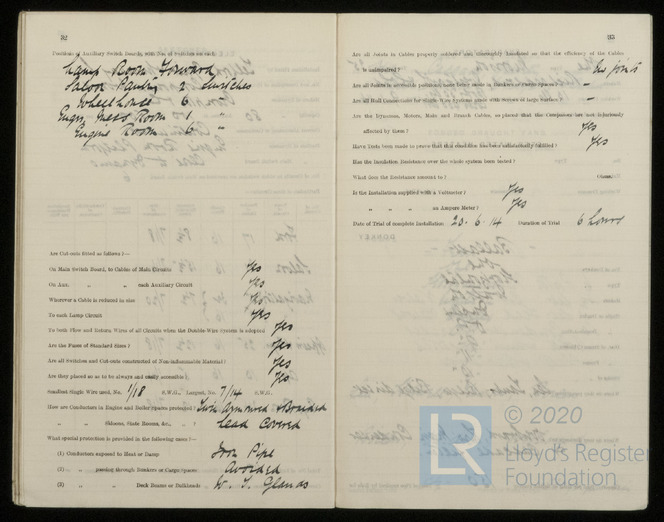 32
Positions of Auxiliary Switch Boards, with Nos. of Switches on each
Lamp Room Forward
Saloon Pantry 2 switches
Wheelhouse 6 "
Engrs Mess Room 1 "
Engine Room 6 "
Are Cut-outs fitted as follows?—
On Main Switch Board, to Cables of Main Circuits Yes
On Aux. " " each Auxiliary Circuit Yes
Wherever a Cable is reduced in size Yes
To each Lamp Circuit Yes
To both Flow and Return Wires of all Circuits when the Double-Wire System is adopted Yes
Are the Fuses of Standard Sizes? Yes
Are all Switches and Cut-outs constructed of Non-inflammable Material? Yes
Are they placed so as to be always and easily accessible? Yes
Smallest Single Wire used, No. 1/18 S.W.G., Largest, No. 7/14 S.W.G.
How are Conductors in Engine and Boiler Spaces protected? Twin Armoured & Braided
" " Saloons, State Rooms, &c., " ? Lead Covered
What special protection is provided in the following cases?—
(1) Conductors exposed to Heat or Damp Iron Pipe
(2) " passing through Bunkers or Cargo Spaces Avoided
(3) " " Deck Beams or Bulkheads W. T. Glands
33
Are all Joints in Cables properly soldered and thoroughly insulated so that the efficiency of the Cables
is unimpaired? No joints
Are all Joints in accessible positions, none being made in Bunkers or Cargo Spaces? –
Are all Hull Connections for Single-Wire Systems made with Screws of large surface? –
Are the Dynamos, Motors, Main and Branch Cables, so placed that the Compasses are not injuriously
affected by them? Yes
Have Tests been made to prove that this condition has been satisfactorily fulfilled? Yes
Has the Insulation Resistance over the whole system been tested?
What does the Resistance amount to? Ohms.
Is the Installation supplied with a Voltmeter? Yes
" " " an Ampere Meter? Yes
Date of Trial of complete Installation 20.6.14 Duration of Trial 6 hours
LR
© 2020
Lloyd's Register
Foundation